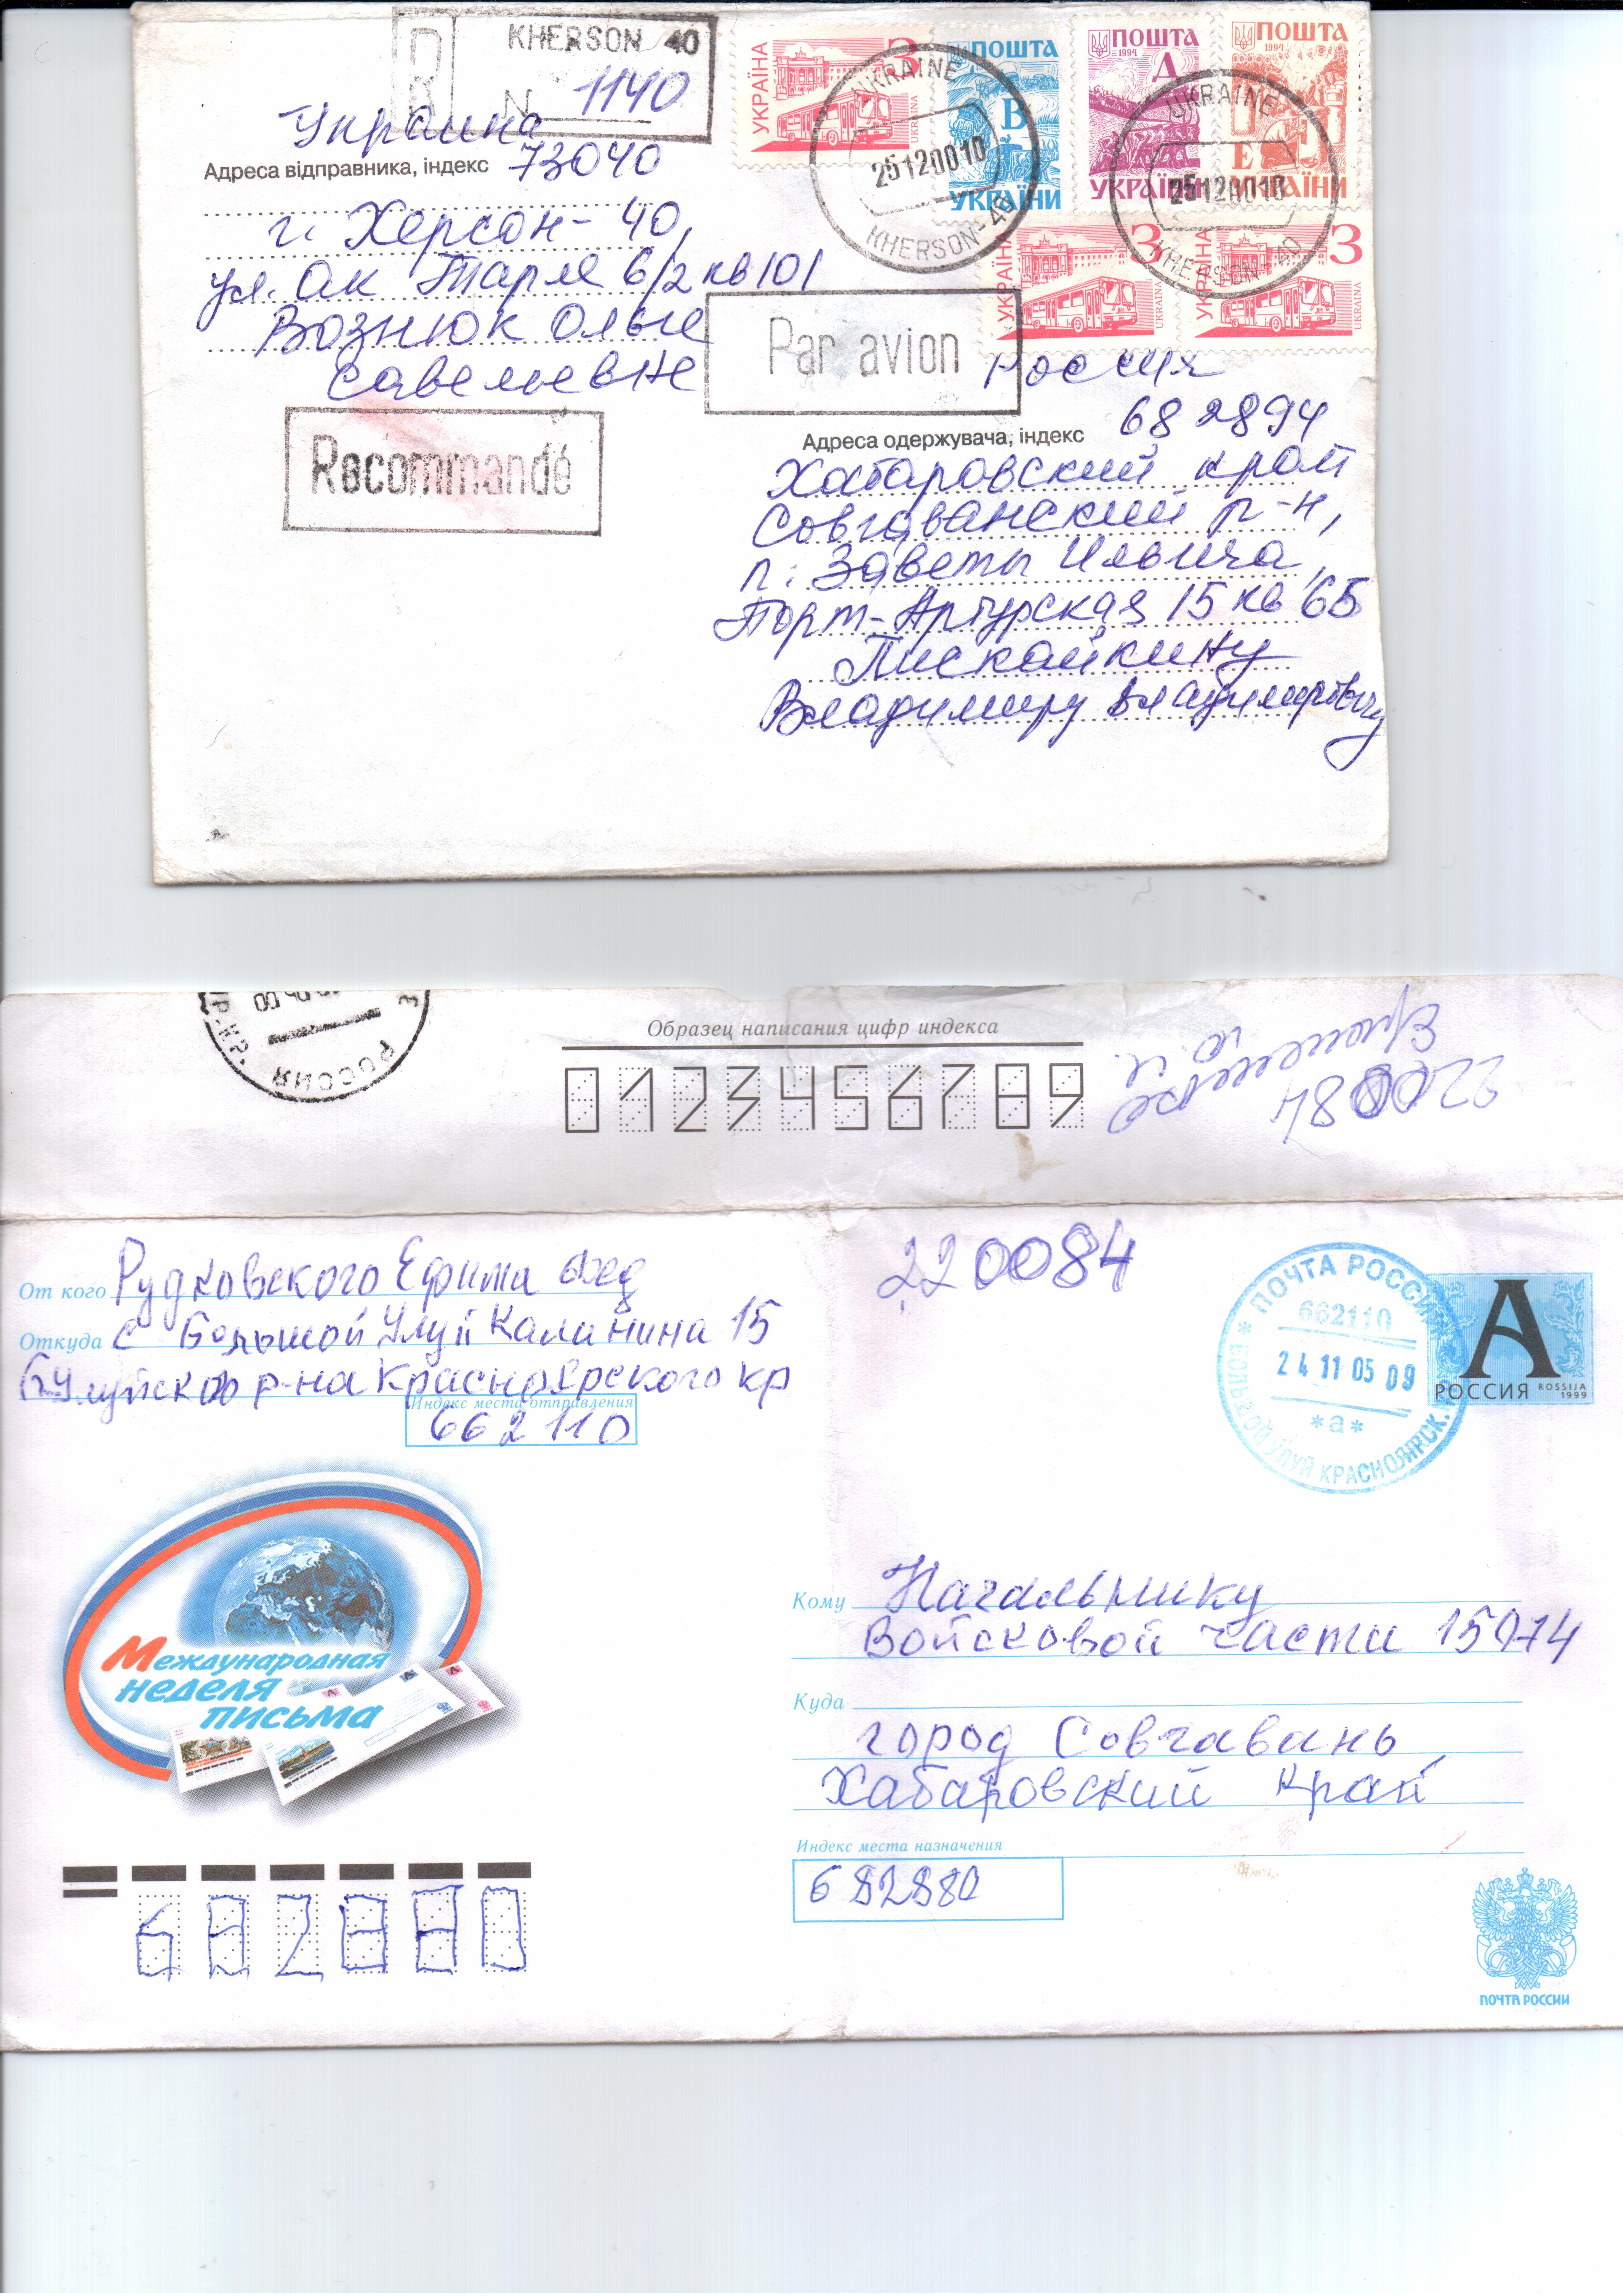 R
KHERSON 40
N 1140
Украина
Адреса відправника, індекс 73040
г. Херсон-40,
ул. Ак Тарле 6/2 кв 101
Вознюк Ольге
Савельевне
Recommandé
Par avion
УКРАЇНА З UKRAINA
ПОШТА В УКРАЇНИ
ПОШТА 1994 Д УКРАЇНИ
ПОШТА 1994 Е УКРАЇНИ
УКРАЇНА З UKRAINA
УКРАЇНА З UKRAINA
UKRAINE 25120010 KHERSON-40
UKRAINE 25120010 KHERSON-40
Россия
Адреса одержувача, індекс 682894
Хабаровский край
Совгаванский р-н,
п. Заветы Ильича,
Порт-Артурская 15 кв 65
Пискайкину
Владимиру Владимировичу
РОССИЯ
Образец написания цифр индекса
0123456789
220084
От кого Рудковского Ефима
Откуда с Большой Улуй Калинина 15
БУлуйского р-на Красноярского кр
Индекс места отправления
662110
220084
ПОЧТА РОССИИ
662110
24 11 05 09
*а*
БОЛЬШОЙ УЛУЙ КРАСНОЯРСК.
А
РОССИЯ ROSSIJA 1999
Международная
неделя
письма
Кому Начальнику
Войсковой части 15974
Куда
город Совгавань
Хабаровский Край
Индекс места назначения
682880
682880
ПОЧТА РОССИИ